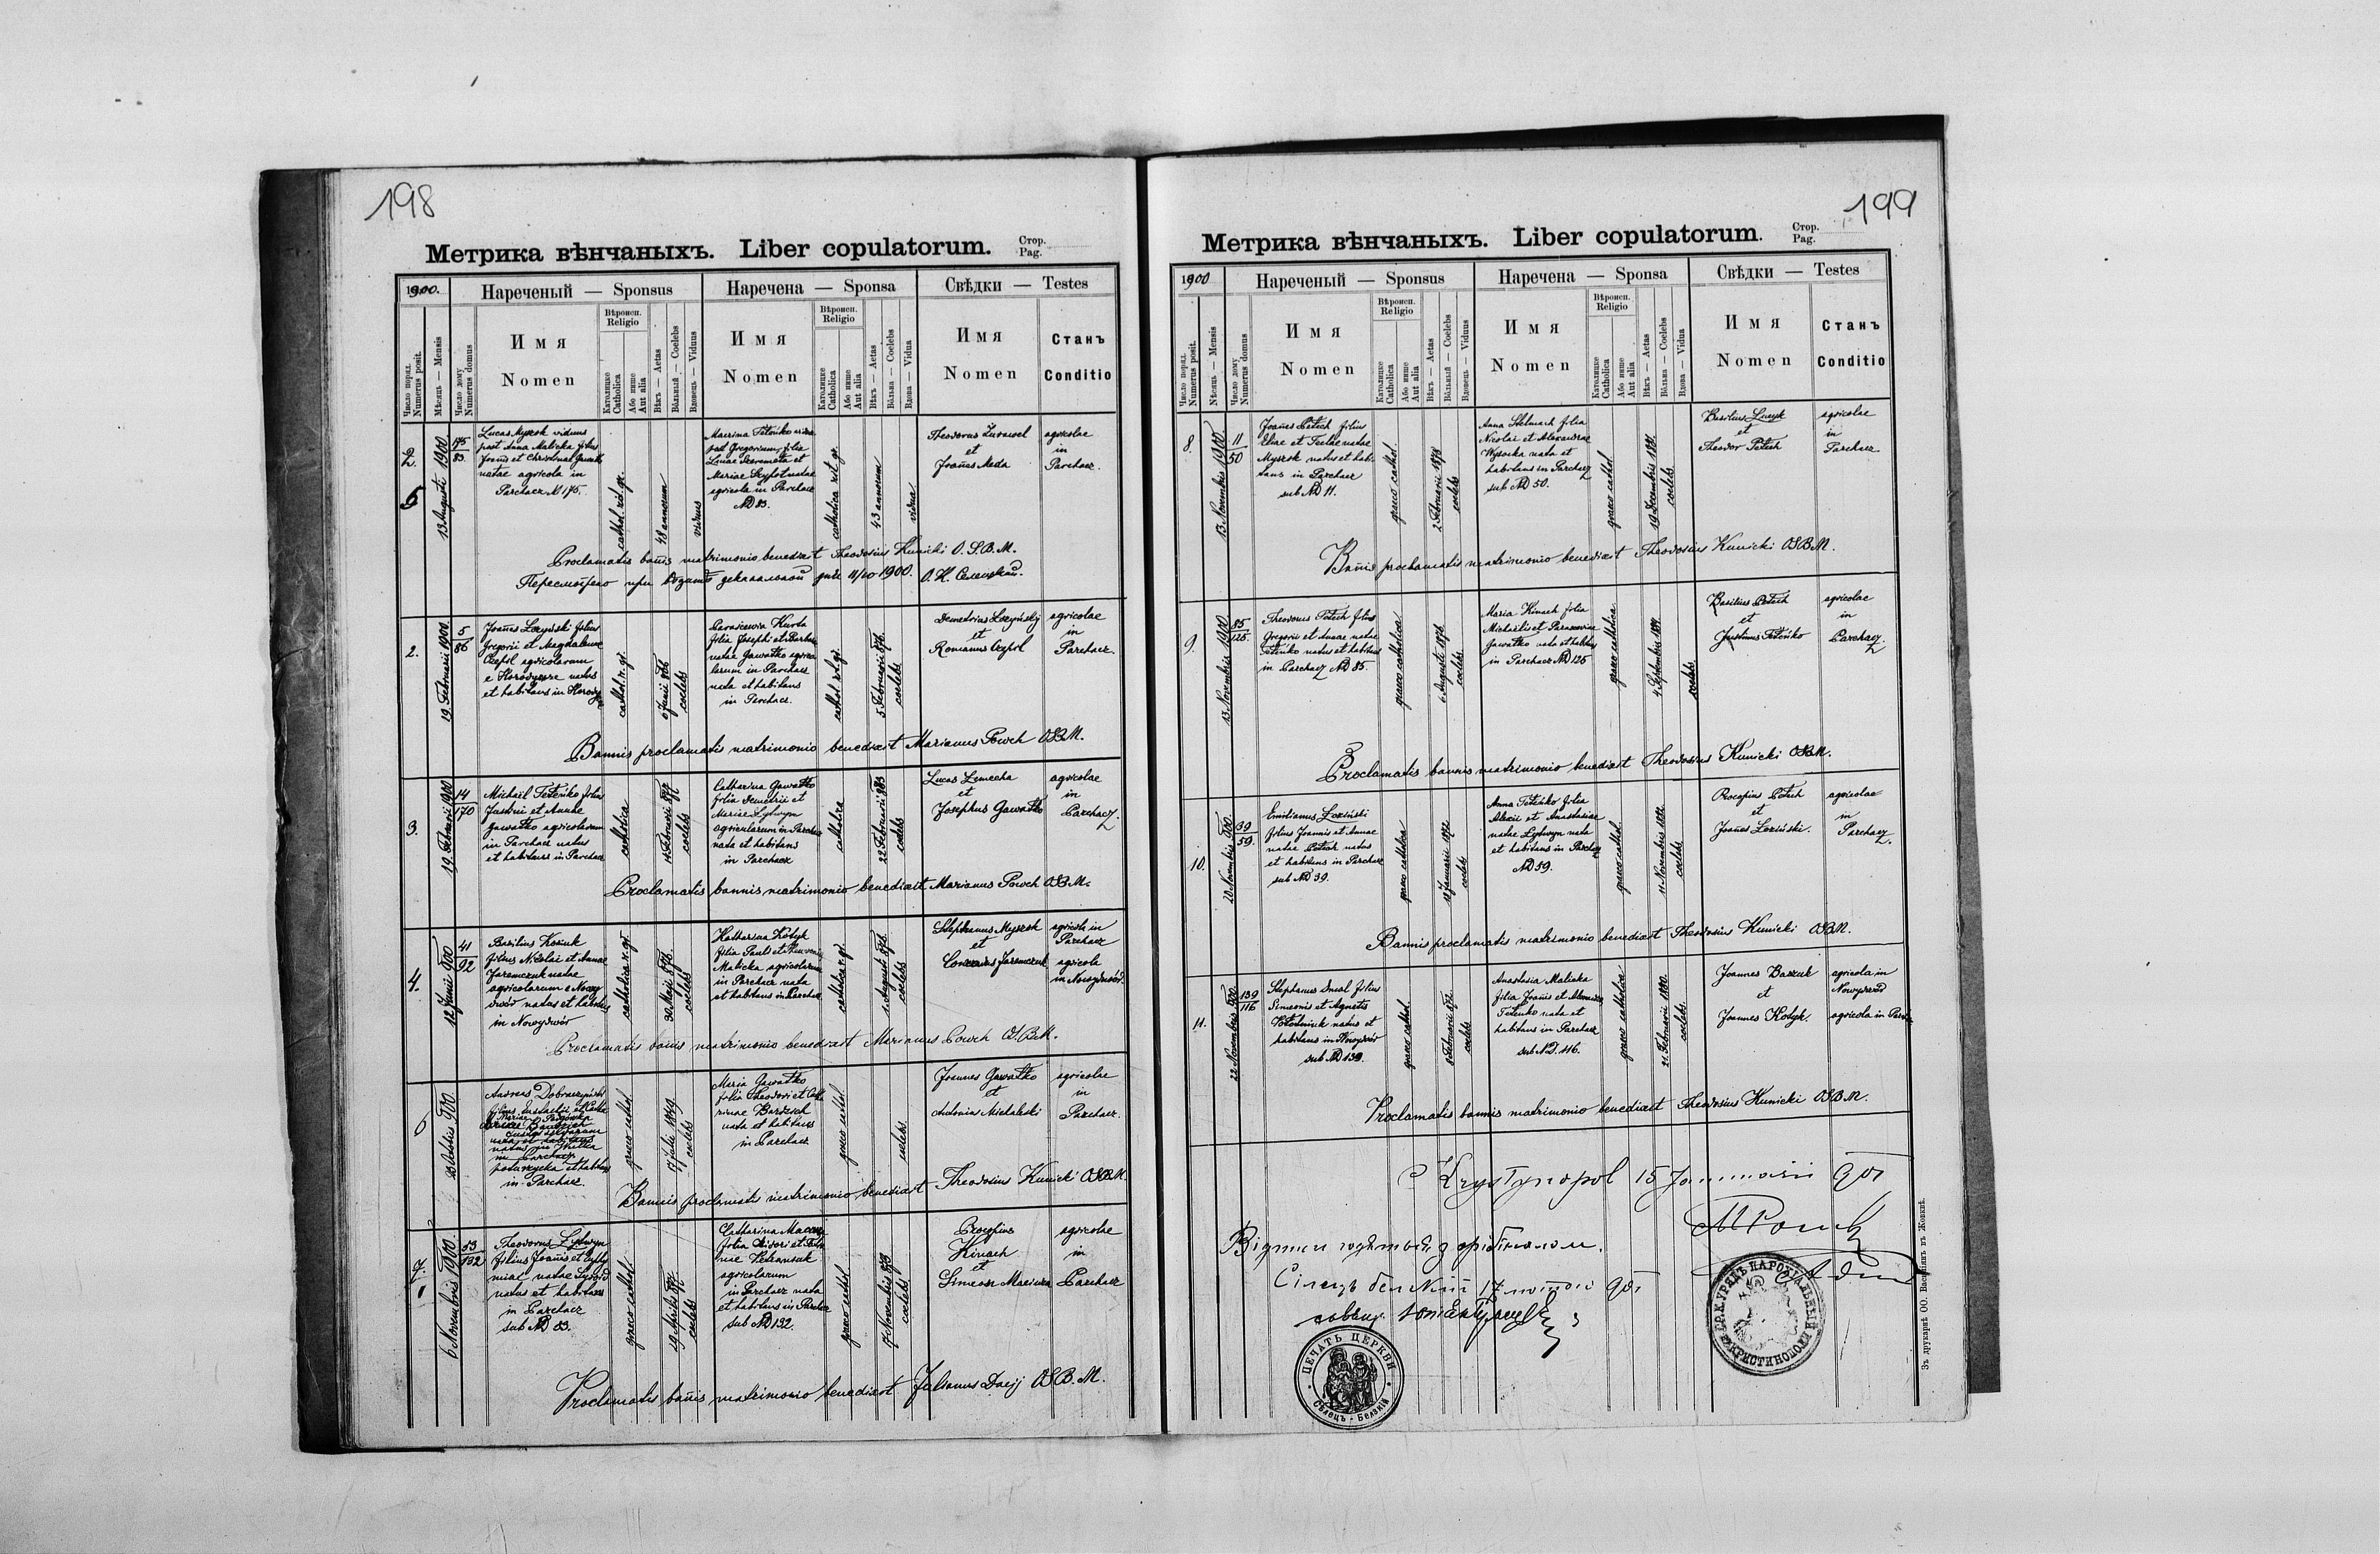 198
Метрика вѣнчаныхъ. Liber copulatorum. Стор. Pag.
1900.
Нареченый — Sponsus
Наречена — Sponsa
Свѣдки — Testes
Число поряд. Numerus posit.
Мѣсяць — Mensis
Число дому Numerus domus
Имя
Nomen
Вѣроисп. Religio
Католицке Catholica
Або инше Aut alia
Вѣкъ — Aetas
Вôльный — Coelebs
Вдовець — Viduus
Имя
Nomen
Вѣроисп. Religio
Католицке Catholica
Або инше Aut alia
Вѣкъ — Aetas
Вôльна — Coelebs
Вдова — Vidua
Имя
Nomen
Станъ
Conditio
5
13 Augusti 1900
175
83
Lucas Myszok viduus
post Anna Malicka filius
Joañis et
natae agricola in
Parchacz N 175.
cathol. rit. gr.
48 annorum
viduus
Teteńko vidua
post Gregorium filia
Lucae et
Mariae natae
agricola in Parchacz
ND 83.
catholica rit. gr.
43 annorum
vidua
Theodorus Zurawel
et
Joañes Meda
agricolae
in
Parchacz.
Proclamatis bañis matrimonio benedixit Theodosius Kunicki O.S.B.M.
Пересмотрено при деканальной дня 11/10 1900.
2.
19. Februarii 1900.
5
86
Joañes Łozyński filius
Gregorii et Magdalenae
Czepil agricolarum
e natus
et habitans in
cathol. r. gr.
6 Junii 876
coelebs
Parascewia Kurta
filia Josephi et Barbarae
natae Gawatko
in Parchacz
nata et habitans
in Parchacz.
cathol. rit. gr.
5 Februarii 876.
coelebs
Demetrius Łozyńskij
et
Romanus Czepil
agricolae
in
Parchacz.
Bannis proclamatis matrimonio benedixit Marianus Powch OSBM.
3.
19. Februarii 1900
14
170
Michaël Teteńko filius
et Annae
Gawatko agricolarum
in Parchacz natus
et habitans in Parchacz
catholica
14 Februarii 877
coelebs
Catharina Gawatko
filia Demetrii et
Mariae Lytwyn
agricolarum in Parchacz
nata et habitans
in Parchacz
catholica
22 Februarii 883
coelebs
Lucas Lemecha
et
Josephus Gawatko
agricolae
in
Parchacz.
Proclamatis bannis matrimonio benedixit Marianus Powch OSBM.
4.
12 Junii 900
41
92
Basilius
filius Nicolai et Annae
Jaremczuk natae
agricolarum e Nowy
dwór natus et habitans
in Nowydwór
catholica r. gr.
30. Maii 876.
coelebs
Katharina Kotyk
filia Pauli et
Malicka agricolarum
in Parchacz nata
et habitans in Parchacz
catholica r. gr.
1 Augusti 876.
coelebs
Stephanus Myszok
et
Jaremczuk
agricola in
Parchacz
agricola
in Nowydwór.
Proclamatis bañis matrimonio benedixit Marianus Powch OSBM.
6
23 Octobris 900
Andreas Dobraczyński
filius Eustachii et
natus in
et habitans
in Parchacz.
graeco cathol.
17 Julii 1869.
coelebs
Maria Gawatko
filia Theodori et
rinae Bardzich
nata et habitans
in Parchacz
graeco cathol.
coelebs
Joannes Gawatko
et
Antonius Michalski
agricolae
in
Parchacz.
Bannis proclamatis matrimonio benedixit Theodosius Kunicki OSBM.
7.
6 Novembris 1900.
53
132
Theodorus Lytwyn
filius Joañis et
miae natae
natus et habitans
in Parchacz
sub ND 53.
graeco cathol.
29 Aprilis 877.
coelebs
Catharina
filia et
agricolarum
in Parchacz nata
et habitans in Parchacz
sub ND 132.
graeco cathol.
17 Novembris 873
coelebs
Procopius
Kinach
et
Simeon
agricolae
in
Parchacz
Proclamatis bañis matrimonio benedixit Julianus OSB.M.
199
Метрика вѣнчаныхъ. Liber copulatorum. Стор. Pag.
1900
Нареченый — Sponsus
Наречена — Sponsa
Свѣдки — Testes
Число поряд. Numerus posit.
Мѣсяць — Mensis
Число дому Numerus domus
Имя
Nomen
Вѣроисп. Religio
Католицке Catholica
Або инше Aut alia
Вѣкъ — Aetas
Вôльный — Coelebs
Вдовець — Viduus
Имя
Nomen
Вѣроисп. Religio
Католицке Catholica
Або инше Aut alia
Вѣкъ — Aetas
Вôльна — Coelebs
Вдова — Vidua
Имя
Nomen
Станъ
Conditio
8.
13. Novembris 1900.
11
50
Joañes Petech filius
Eliae et Teclae natae
Myszok natus et habi
tans in Parchacz
sub ND 11.
graeco cathol.
2 Februarii 1878
coelebs
Anna Stelmach filia
Nicolai et Alexandrae
Wysocka nata et
habitans in Parchacz
sub ND 50.
graeco cathol.
19 Decembris 1881.
coelebs
Basilius
et
Theodor Petech
agricolae
in
Parchacz
Bañis proclamatis matrimonio benedixit Theodosius Kunicki OSBM.
9.
13 Novembris 1900
85
125
Theodorus Petech filius
Gregorii et Annae natae
Teteńko natus et habitans
in Parchacz ND 85.
graeco catholica
6 Augusti 1876
coelebs
Maria Kinach filia
Michaëlis et Parasceviae
Gawatko nata et habitans
in Parchacz ND 125
graeco catholica
coelebs
Basilius Petech
et
Justinus Teteńko
agricolae
in
Parchacz
Proclamatis bannis matrimonio benedixit Theodosius Kunicki OSBM.
10.
20 Novembris 900.
39
59.
Emilianus Łoziński
filius Joannis et Annae
natae Petech natus
et habitans in Parchacz
sub ND 39.
graeco catholica
18 Januarii 1872
coelebs
Anna Teteńko filia
Alexii et Anastasiae
natae Lytwyn nata
et habitans in Parchacz
ND 59.
graeco cathol.
coelebs
Procopius Petech
et
Joañes Łoziński.
agricolae
in
Parchacz.
Bannis proclamatis matrimonio benedixit Theodosius Kunicki OSBM.
11.
22 Novembris 900.
139
116
Stephanus filius
Simeonis et Agnetis
natus et
habitans in Nowydwór
sub ND 139.
graeco cathol.
8 Februarii 872.
coelebs
Anastasia Malicka
filia Joañis et
Tetenko nata et
habitans in Parchacz
sub ND. 116.
graeco catholica
21 Februarii 1880.
coelebs
Joannes
et
Joannes Kotyk.
agricola in
Nowydwór
agricola in
Proclamatis bannis matrimonio benedixit Theodosius Kunicki OSBM.
Krystynopol 15 Januarii 901
17 901
ПЕЧАТЬ ЦЕРКВИ
Сѣлець - Белзкій
ГР. К. УРЯДЪ ПАРОХІАЛЬНЫЙ КРИСТИНОПОЛИ
Зъ друкарнѣ ОО. Василіянъ въ Жовквѣ.